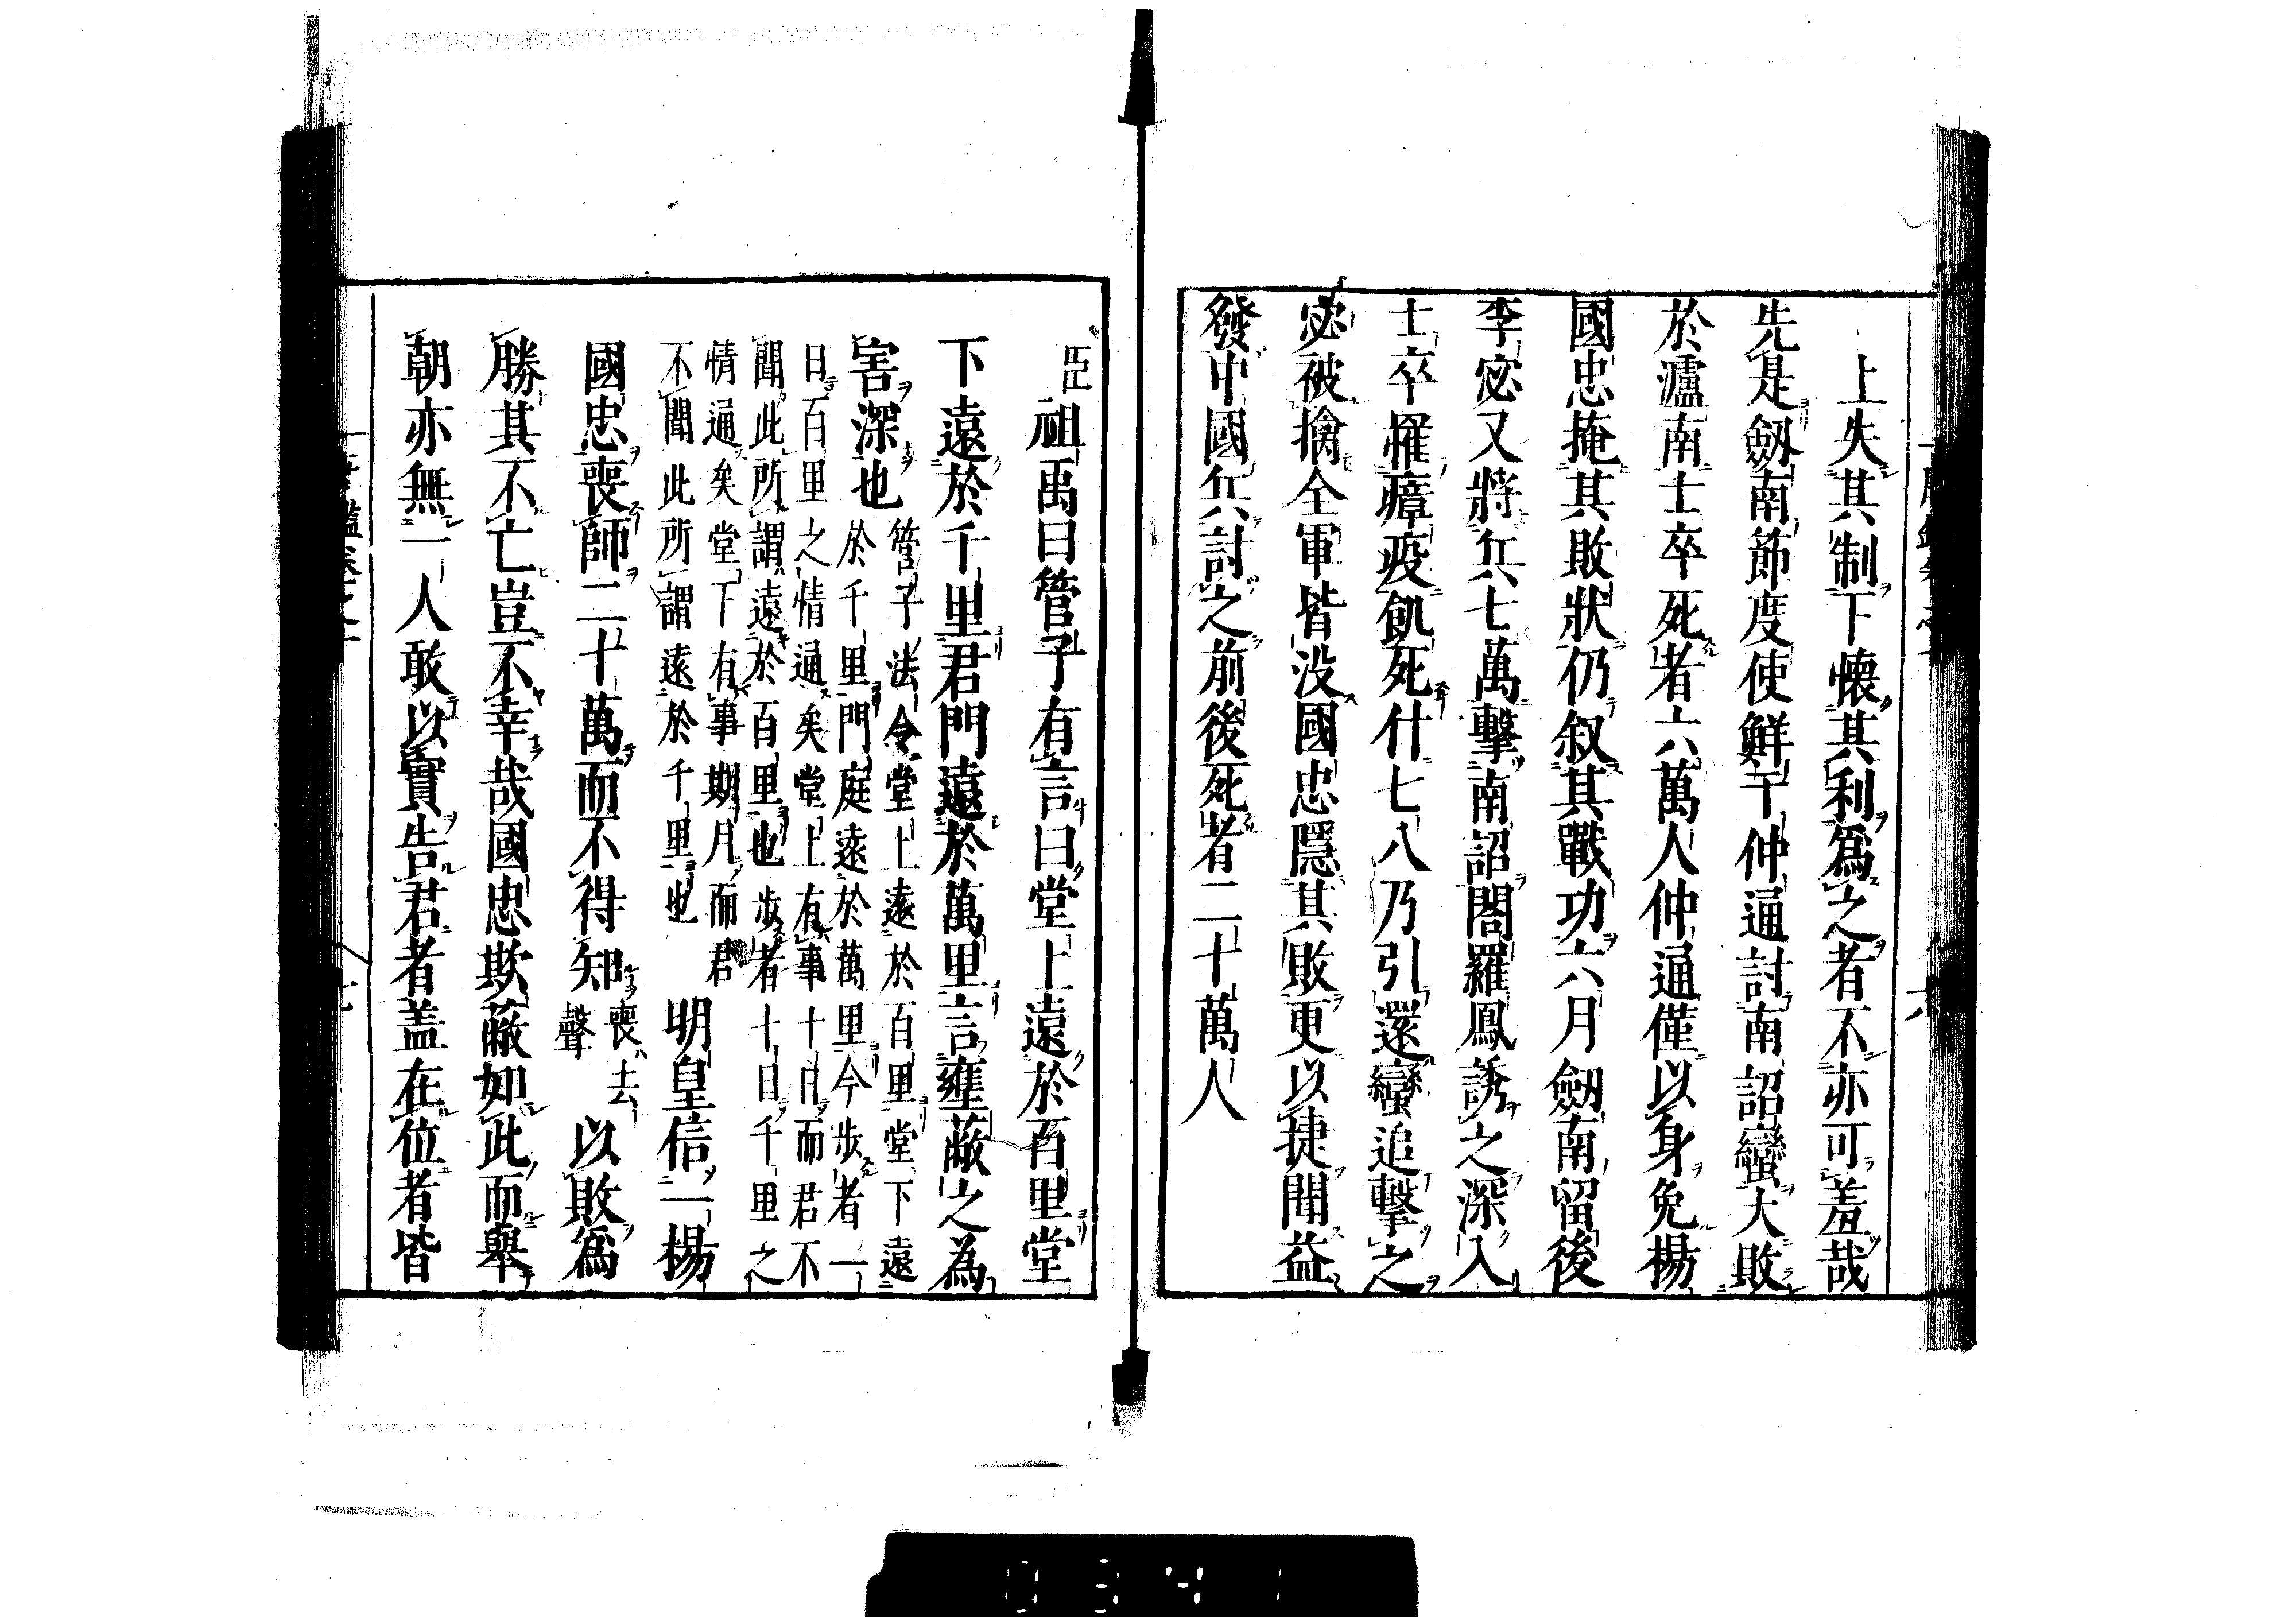 上失其制下懷其利爲之者不亦可羞哉
先是劔南節度使鮮于仲通討南詔蠻大敗
於瀘南士卒死者六萬人仲通僅以身免楊
國忠掩其敗狀仍叙其戰功六月劔南留後
李宓又將兵七萬擊南詔閤羅鳳誘之深入
士卒罹瘴疫飢死什七八乃引還蠻追擊之
宓被擒全軍皆没國忠隱其敗更以捷聞益
發中國兵討之前後死者二十萬人
臣祖禹曰管子有言曰堂上遠於百里堂
下遠於千里君門遠於萬里言壅蔽之為
害深也
管子法令堂上遠於百里堂下遠
於千里門庭遠於萬里今步者一
日百里之情通矣堂上有事十日而君不
聞此所謂遠於百里也步者十日千里之
情通矣堂下有事期月而君
不聞此所謂遠於千里也
明皇信一楊
國忠喪師二十萬而不得知
喪去
聲
以敗爲
勝其不亡豈不幸哉國忠欺蔽如此而舉
朝亦無一人敢以實告君者盖在位者皆